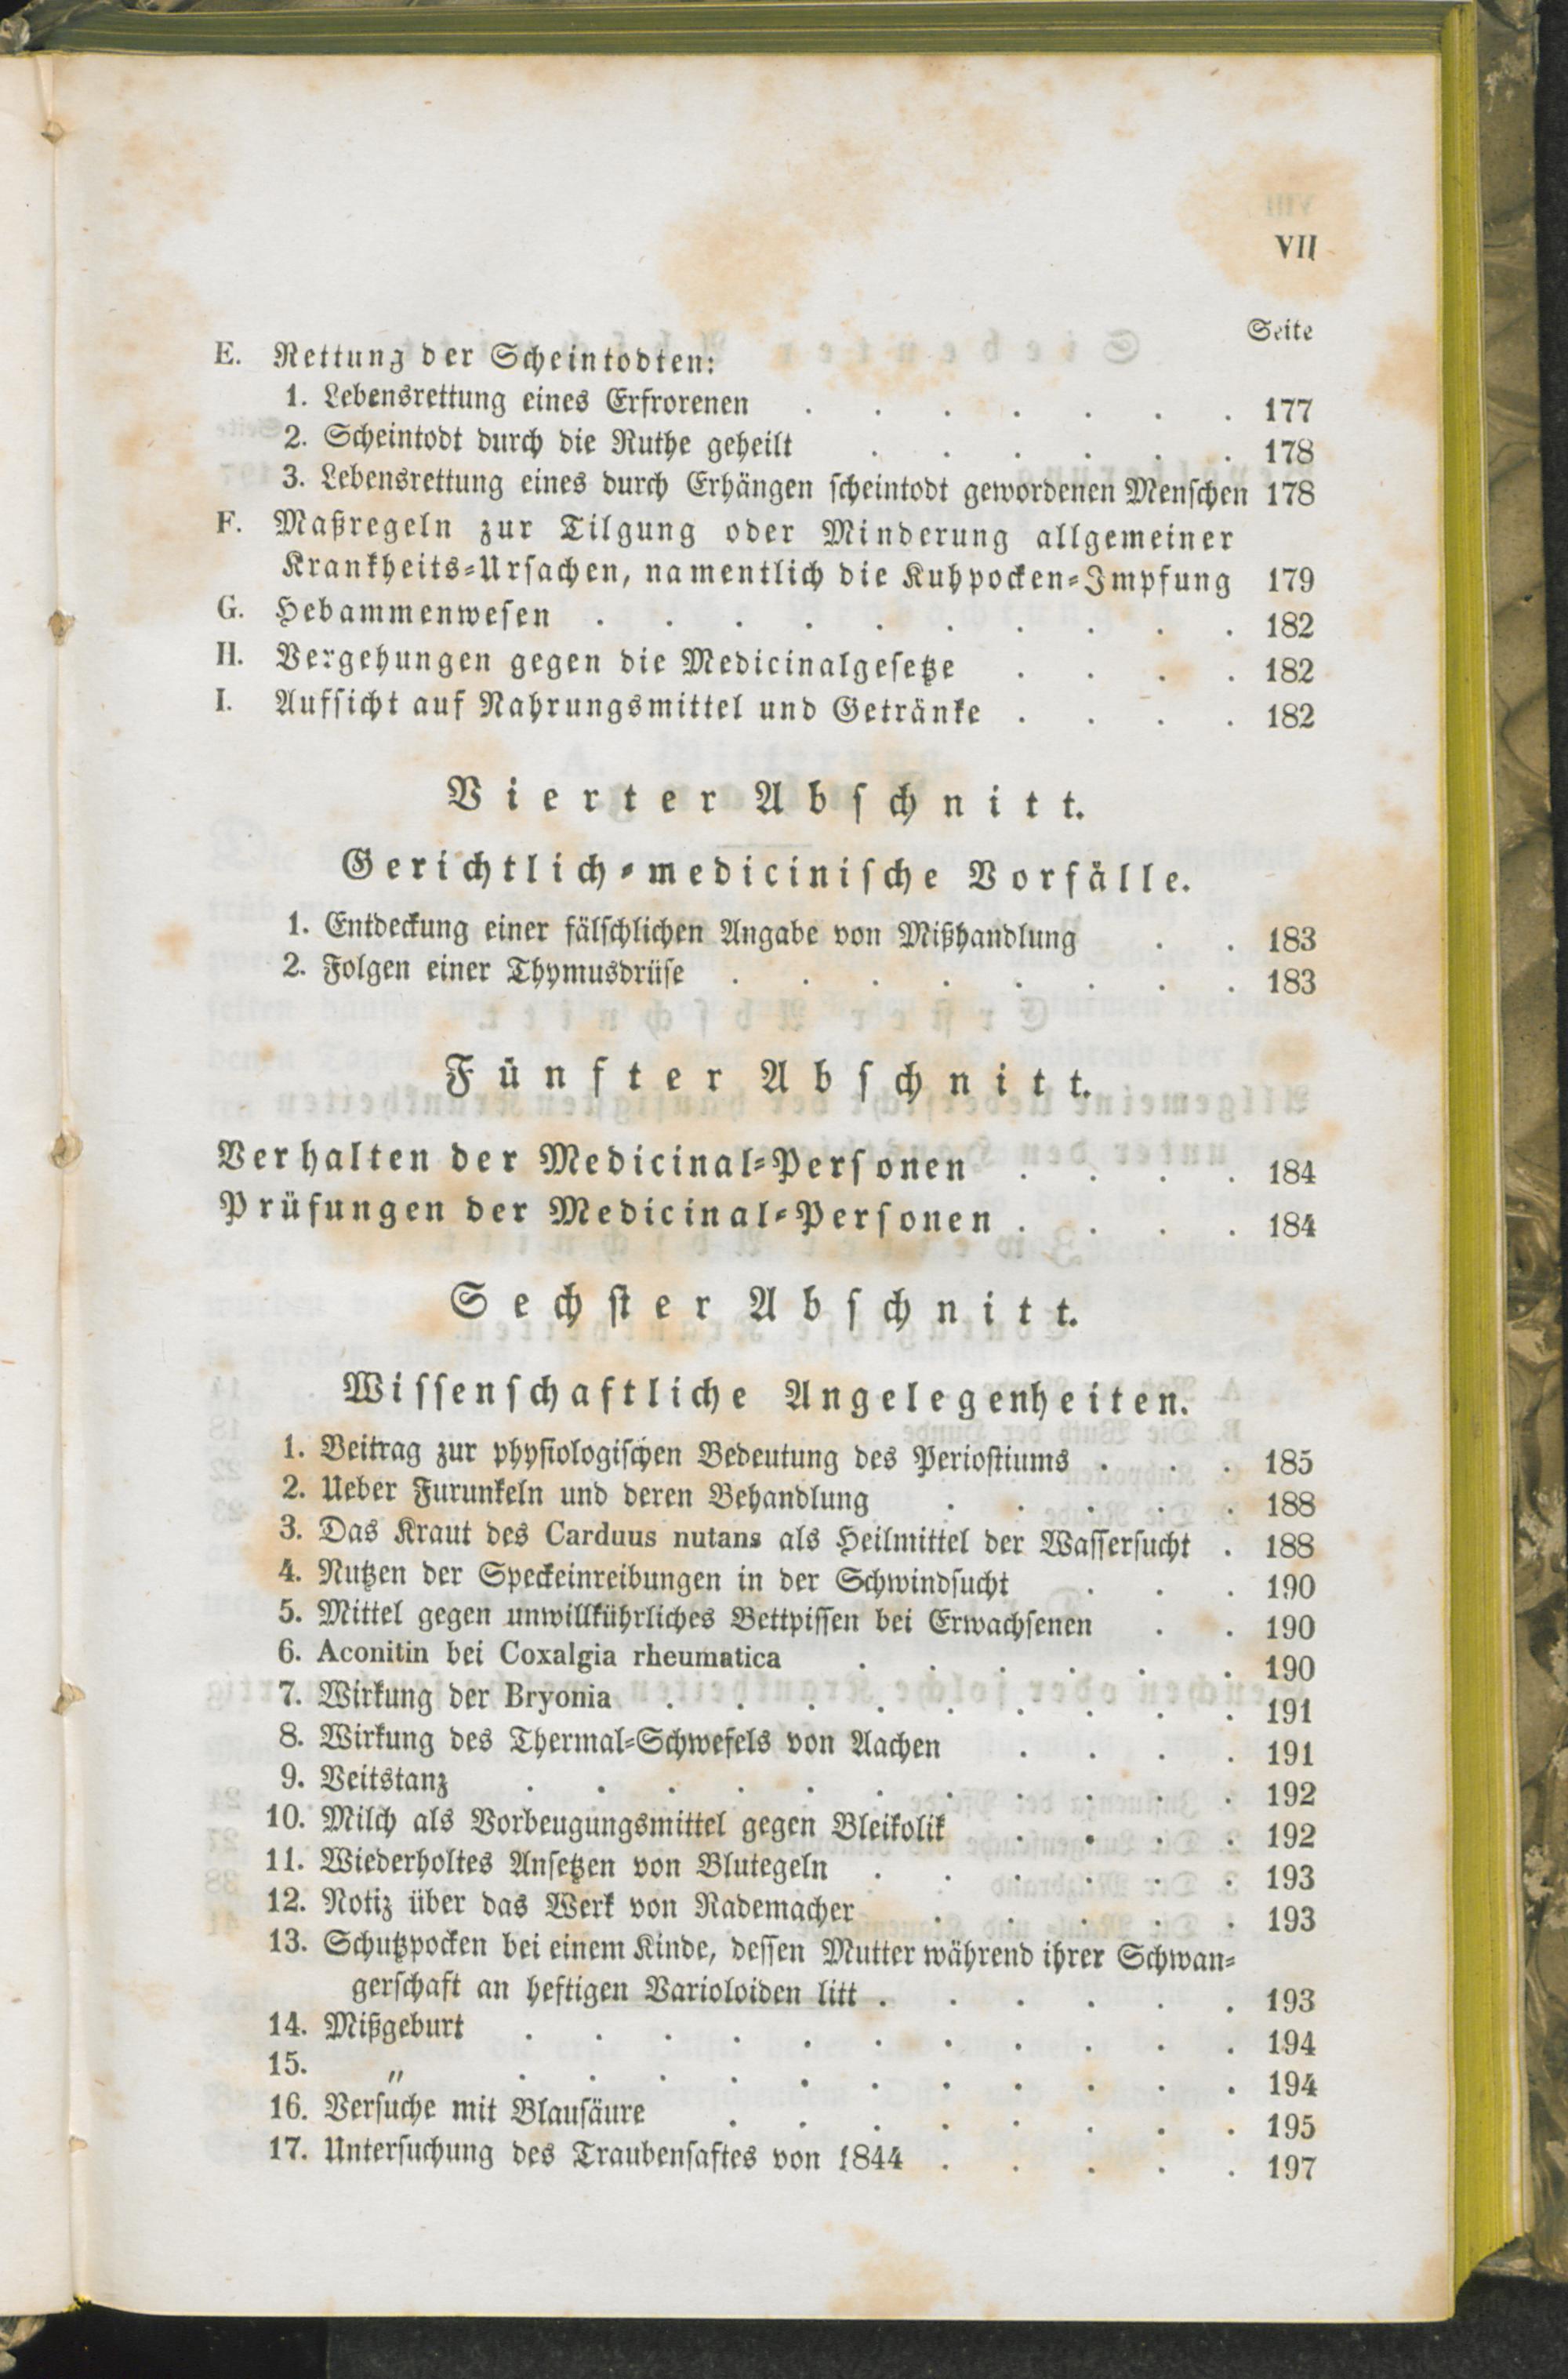 VII
Seite
E. Rettung der Scheintodten:
1. Lebensrettung eines Erfrorenen . . . . . . . 177
2. Scheintodt durch die Ruthe geheilt . . . . . . 178
3. Lebensrettung eines durch Erhängen scheintodt gewordenen Menschen 178
F. Maßregeln zur Tilgung oder Minderung allgemeiner
Krankheits-Ursachen, namentlich die Kuhpocken-Impfung 179
G. Hebammenwesen . . . . . . . . . . 182
H. Vergehungen gegen die Medicinalgesetze . . . . 182
I. Aufsicht auf Nahrungsmittel und Getränke . . . . 182
Vierter Abschnitt.
Gerichtlich-medicinische Vorfälle.
1. Entdeckung einer fälschlichen Angabe von Mißhandlung . . 183
2. Folgen einer Thymusdrüse . . . . . . . . 183
Fünfter Abschnitt.
Verhalten der Medicinal-Personen . . . . 184
Prüfungen der Medicinal-Personen . . . . 184
Sechster Abschnitt.
Wissenschaftliche Angelegenheiten.
1. Beitrag zur physiologischen Bedeutung des Periostiums . . . 185
2. Ueber Furunkeln und deren Behandlung . . . . . 188
3. Das Kraut des Carduus nutans als Heilmittel der Wassersucht . 188
4. Nutzen der Speckeinreibungen in der Schwindsucht . . . 190
5. Mittel gegen unwillkührliches Bettpissen bei Erwachsenen . . 190
6. Aconitin bei Coxalgia rheumatica . . . . . . 190
7. Wirkung der Bryonia . . . . . . . . . 191
8. Wirkung des Thermal-Schwefels von Aachen . . . . 191
9. Veitstanz . . . . . . . . . . . 192
10. Milch als Vorbeugungsmittel gegen Bleikolik . . . . 192
11. Wiederholtes Ansetzen von Blutegeln . . . . . . 193
12. Notiz über das Werk von Rademacher . . . . . 193
13. Schutzpocken bei einem Kinde, dessen Mutter während ihrer Schwan-
gerschaft an heftigen Varioloiden litt . . . . . . 193
14. Mißgeburt . . . . . . . . . . . 194
15. " . . . . . . . . . . . 194
16. Versuche mit Blausäure . . . . . . . . 195
17. Untersuchung des Traubensaftes von 1844 . . . . . 197